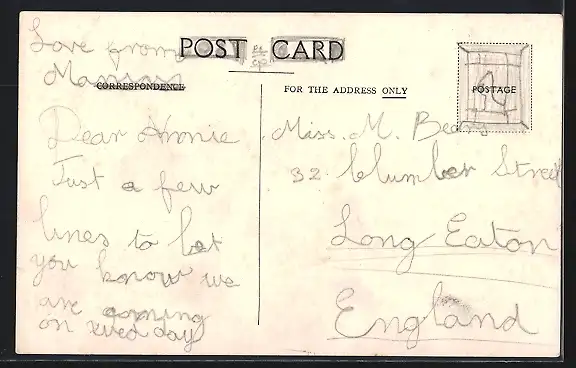 Love from
POST CARD
CORRESPONDENCE
FOR THE ADDRESS ONLY
POSTAGE
Dear Annie
Just a few
lines to let
you know we
are coming
on
Miss. M.
32 Clumber Street
Long Eaton
England